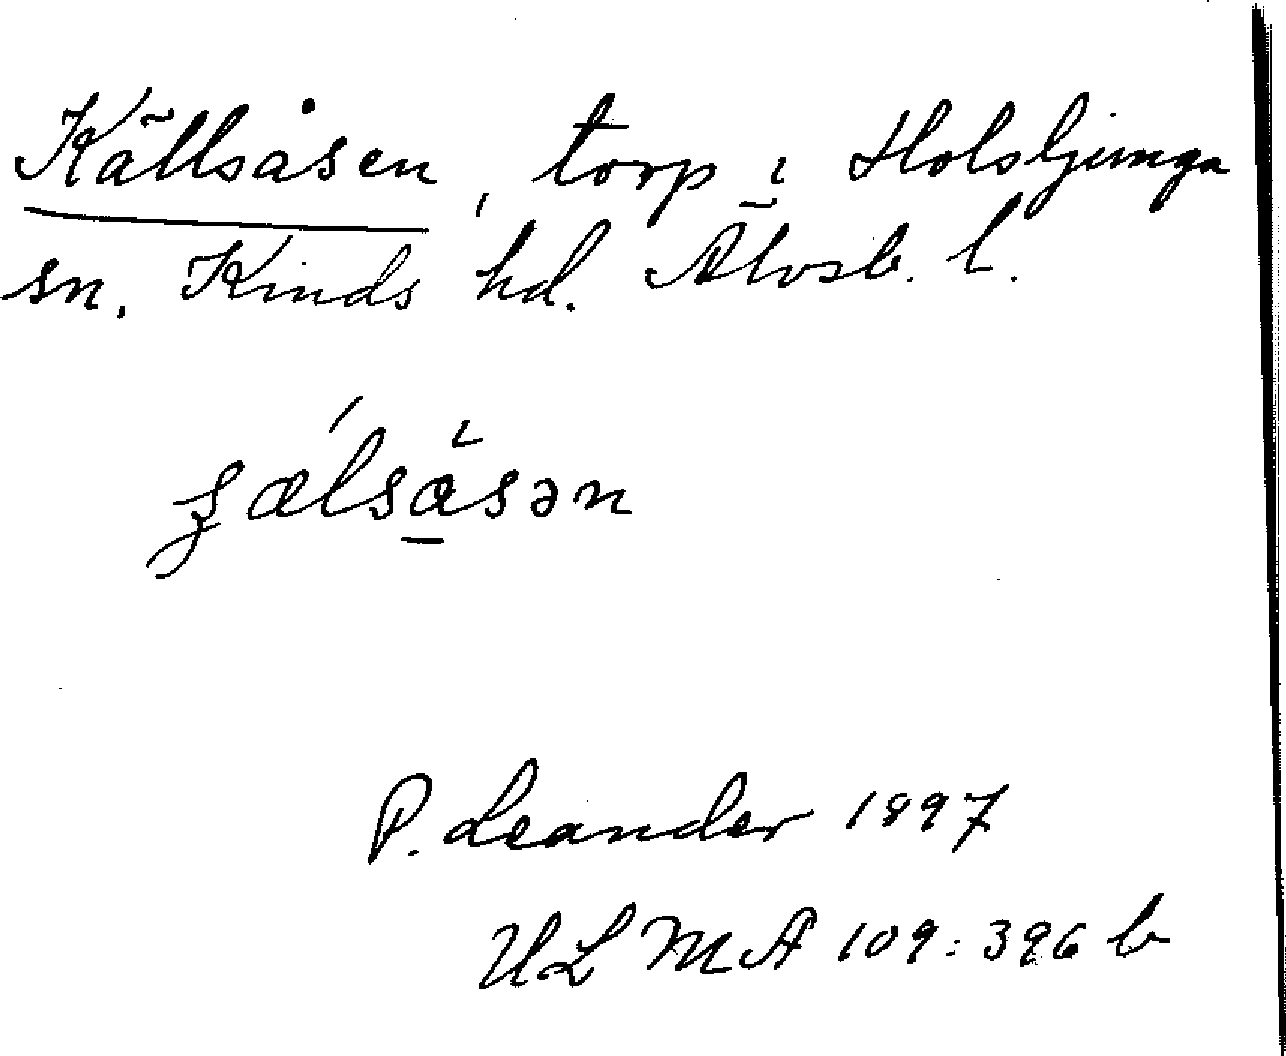 Källsåsen, torp i Holsljunga
sn. Kinds hd. Älvsb. l.
P. Leander 1897
ULMA 109:396 b